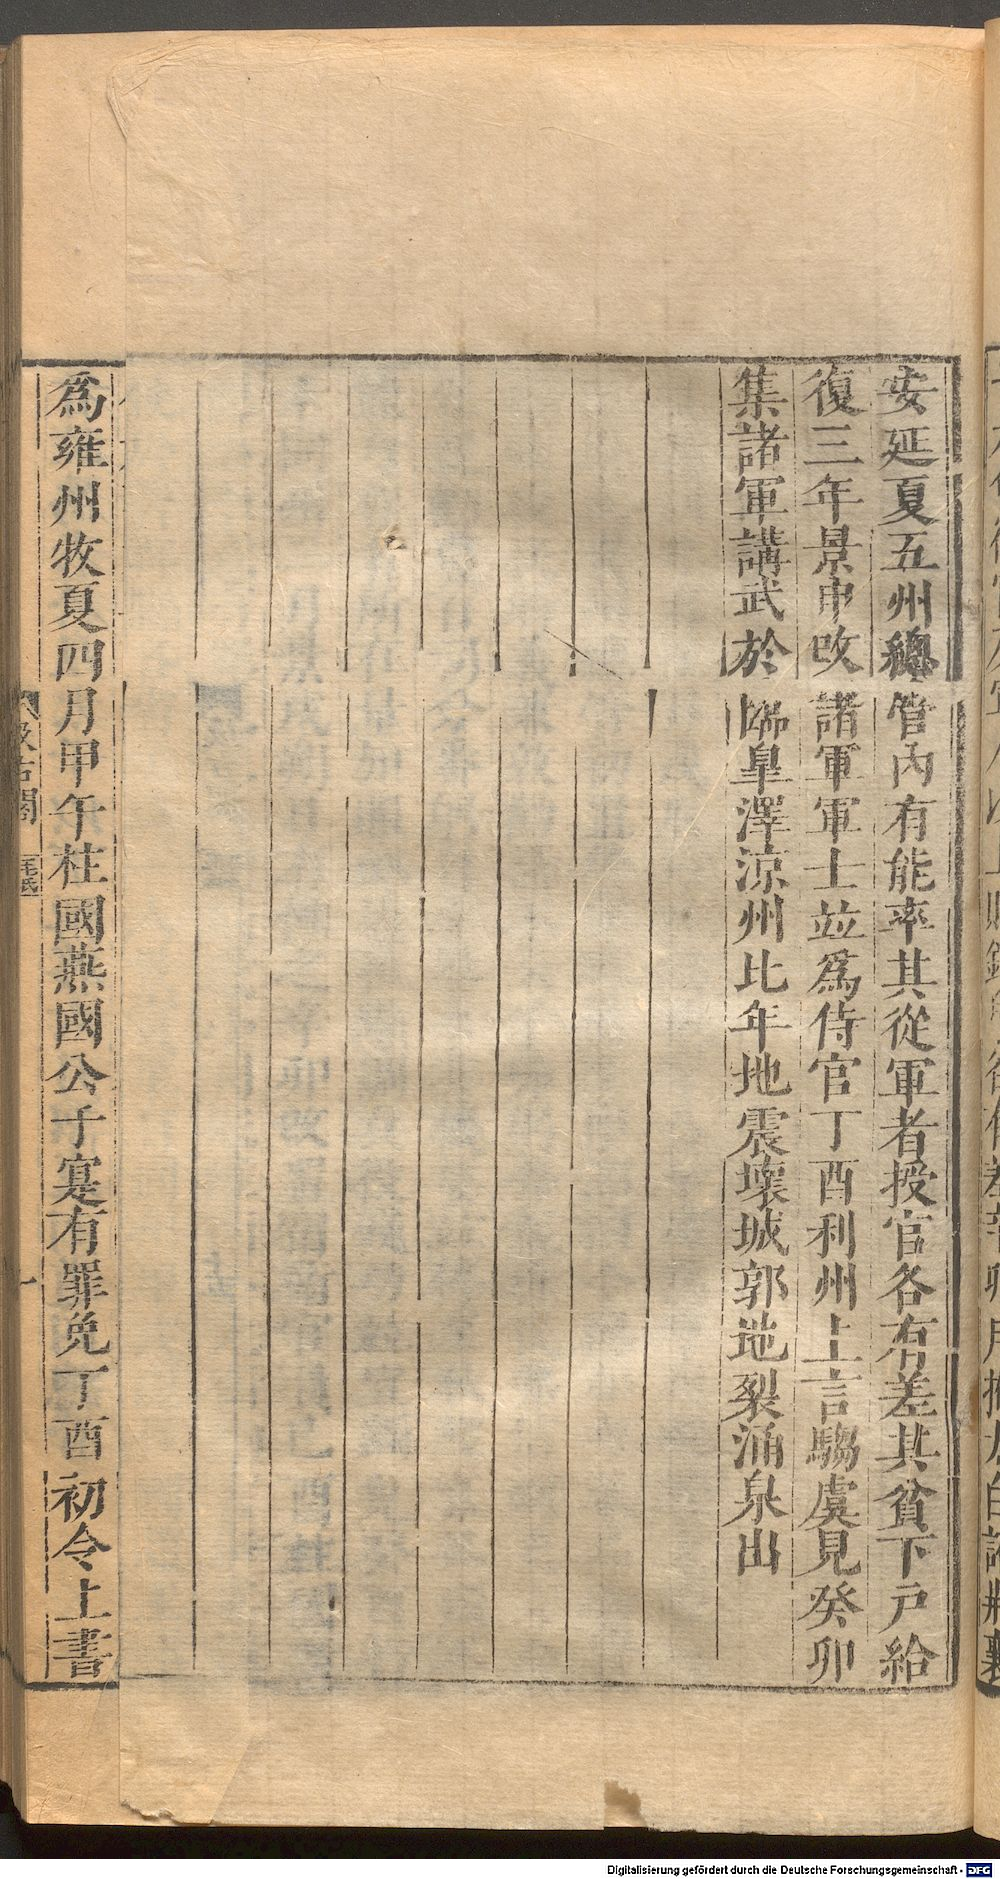 安延夏五州總管內有能率其從軍者授官各有差其貧下戸給
復三年景申改諸軍軍士並爲侍官丁酉利州上言騶虞見癸卯
集諸軍講武於臨皐澤涼州比年地震壞城郭地裂涌泉出
爲雍州牧夏四月甲午柱國燕國公于寔有罪免丁酉初令上書
汲古閣
Digitalisierung gefördert durch die Deutsche Forschungsgemeinschaft - DFG